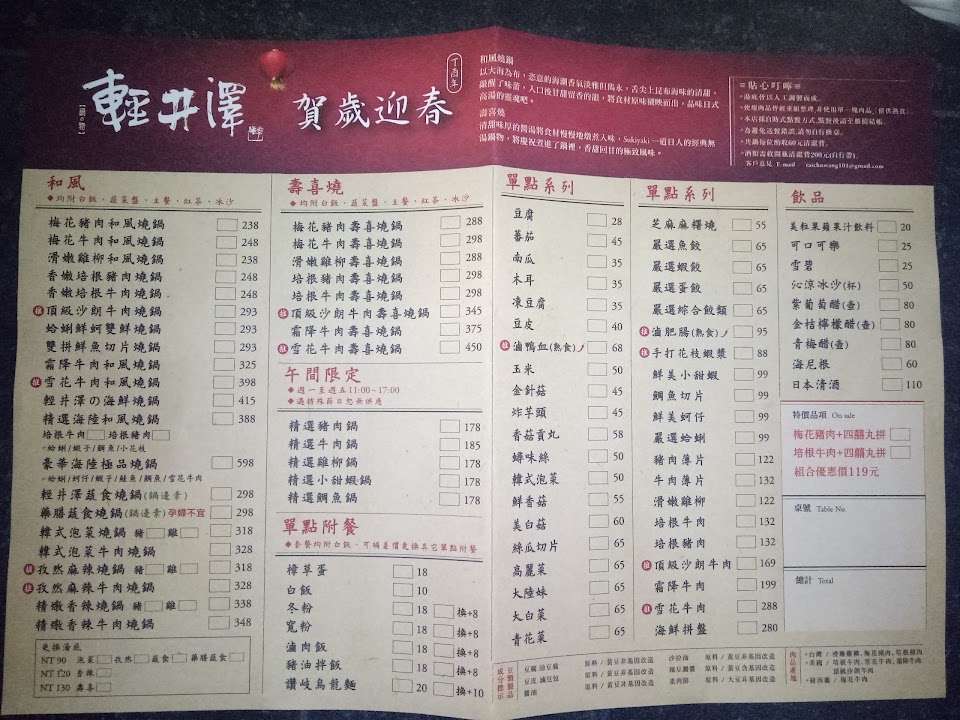 輕井澤
鍋の物
賀歲迎春
丁酉年
和風燒鍋
以大海為布，恣意的海潮香氣淡雅但雋永，舌尖上昆布海味的清甜，
啟醒了味蕾，入口後甘甜留香的韻，將食材原味襯映而出，品味日式
高湯的靈魂吧。
壽喜燒
清甜味厚的醬油將食材慢慢地燉煮入味，Sukiyaki 一道日人的經典無
湯鍋物，將慶祝煮進了鍋裡，香甜回甘的極致風味。
貼心叮嚀
酒類需收開瓶清潔費200元(自行帶)
客戶意見 E-mail taichuwang101@gmail.com
和風
均附白飯、蔬菜盤、主餐、紅茶、冰沙
梅花豬肉和風燒鍋 238
梅花牛肉和風燒鍋 248
滑嫩雞柳和風燒鍋 238
香嫩培根豬肉燒鍋 248
香嫩培根牛肉燒鍋 248
推 頂級沙朗牛肉燒鍋 293
蛤蜊鮮蚵雙鮮燒鍋 293
雙拼鮮魚切片燒鍋 293
霜降牛肉和風燒鍋 325
推 雪花牛肉和風燒鍋 398
輕井澤の海鮮燒鍋 415
精選海陸和風燒鍋 388
培根牛肉 培根豬肉
蛤蜊/蝦子/鯛魚/小花枝
豪華海陸極品燒鍋 598
蛤蜊/蚵仔/蝦子/鮭魚/鯛魚/雪花牛肉
輕井澤蔬食燒鍋(鍋邊素) 298
藥膳蔬食燒鍋(鍋邊素)孕婦不宜 298
韓式泡菜燒鍋 豬 雞 318
韓式泡菜牛肉燒鍋 328
推 孜然麻辣燒鍋 豬 雞 318
推 孜然麻辣牛肉燒鍋 328
精燉香辣燒鍋 豬 雞 338
精燉香辣牛肉燒鍋 348
兌換湯底
NT 90 泡菜 孜然 蔬食 藥膳蔬食
NT 120 香辣
NT 130 壽喜
壽喜燒
均附白飯、蔬菜盤、主餐、紅茶、冰沙
梅花豬肉壽喜燒鍋 288
梅花牛肉壽喜燒鍋 298
滑嫩雞柳壽喜燒鍋 288
培根豬肉壽喜燒鍋 298
培根牛肉壽喜燒鍋 298
推 頂級沙朗牛肉壽喜燒鍋 345
霜降牛肉壽喜燒鍋 375
推 雪花牛肉壽喜燒鍋 450
午間限定
週一至週五11:00~17:00
遇特殊節日恕無供應
精選豬肉鍋 178
精選牛肉鍋 185
精選雞柳鍋 178
精選小甜蝦鍋 178
精選鯛魚鍋 178
單點附餐
套餐均附白飯，可補差價更換其它單點附餐
樟草蛋 18
白飯 10
冬粉 18 換+8
寬粉 18 換+8
滷肉飯 18 換+8
豬油拌飯 18 換+8
讚岐烏龍麵 20 換+10
單點系列
豆腐 28
蕃茄 45
南瓜 35
木耳 35
凍豆腐 35
豆皮 40
推 滷鴨血(熟食) 68
玉米 50
金針菇 45
炸芋頭 45
香菇貢丸 58
蟳味絲 50
韓式泡菜 50
鮮香菇 55
美白菇 60
絲瓜切片 65
高麗菜 65
大陸妹 65
大白菜 65
青花菜 65
單點系列
芝麻麻糬燒 55
嚴選魚餃 65
嚴選蝦餃 65
嚴選蛋餃 65
嚴選綜合餃類 65
推 滷肥腸(熟食) 95
推 手打花枝蝦漿 88
鮮美小甜蝦 99
鯛魚切片 99
鮮美蚵仔 99
嚴選蛤蜊 99
豬肉薄片 122
牛肉薄片 132
滑嫩雞柳 122
培根牛肉 132
培根豬肉 132
推 頂級沙朗牛肉 169
霜降牛肉 199
推 雪花牛肉 288
海鮮拼盤 280
飲品
美粒果蘋果汁飲料 20
可口可樂 25
雪碧 25
沁涼冰沙(杯) 50
紫葡萄醋(壺) 80
金桔檸檬醋(壺) 80
青梅醋(壺) 80
海尼根 60
日本清酒 110
特價品項 On sale
梅花豬肉+四囍丸拼
培根牛肉+四囍丸拼
組合優惠價119元
桌號 Table No.
總計 Total